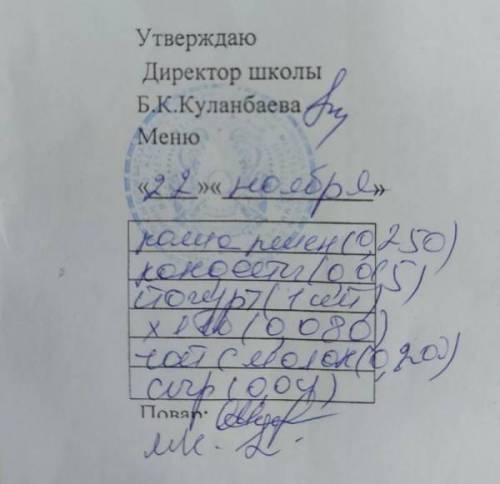 Утверждаю
Директор школы
Б.К.Куланбаева
Меню
«22»«ноября»
каша (0,250)
(0,015)
йогурт (1 шт)
хлеб (0,080)
чай с молок (0,200)
сыр (0,04)
Повар: